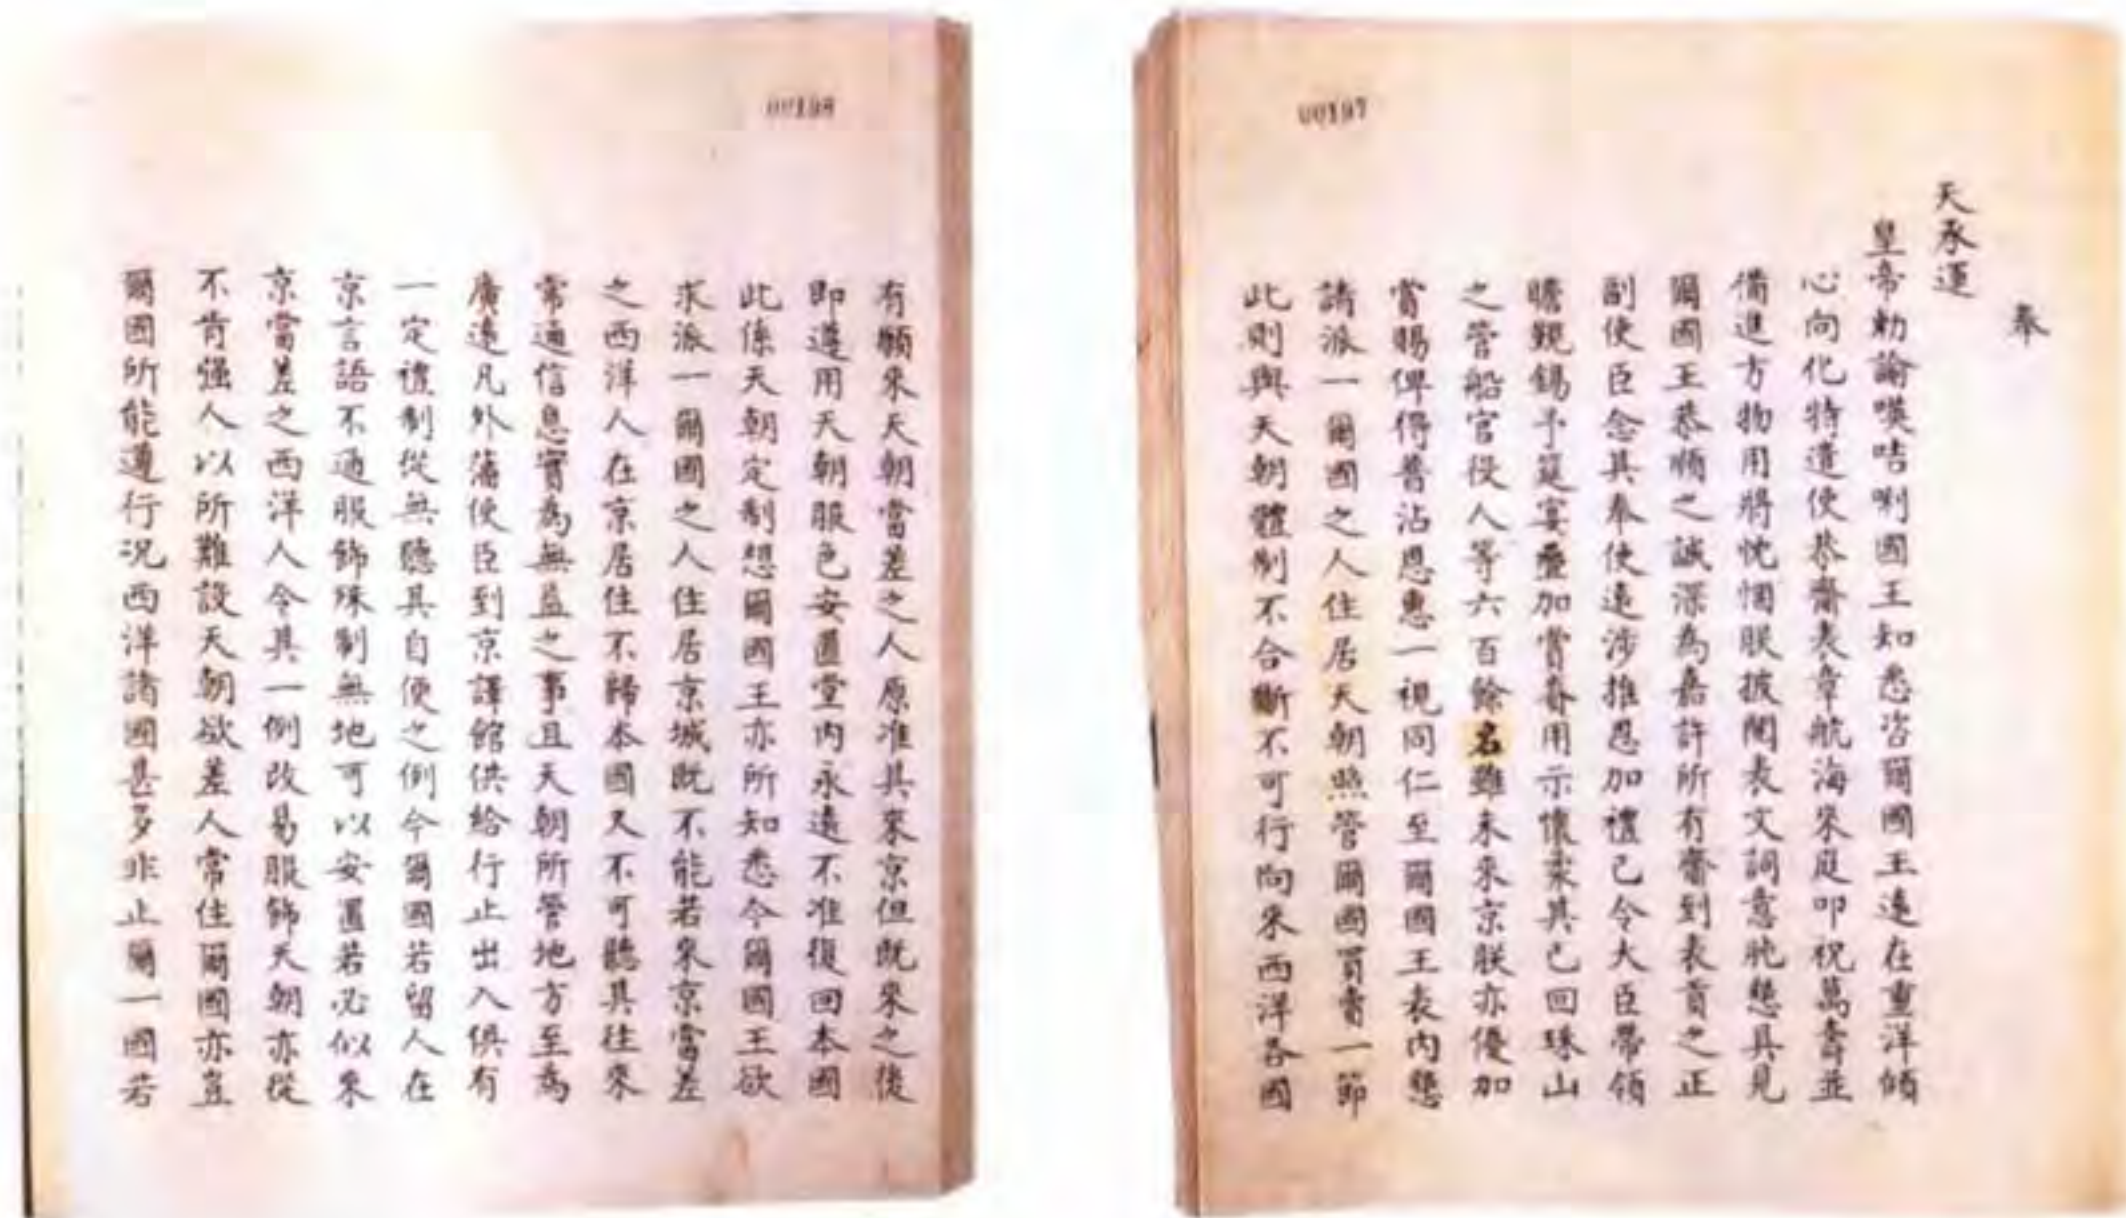 00197
奉
天承運
皇帝勅諭嘆咭唎國王知悉咨爾國王遠在重洋傾
心向化特遣使恭齎表章航海來庭叩祝萬壽並
備進方物用將忱悃朕披閱表文詞意肫懇具見
爾國王恭順之誠深為嘉許所有齎到表貢之正
副使臣念其奉使遠涉推恩加禮已令大臣帶領
瞻覲錫予筵宴疊加賞賚用示懷柔其已回珠山
之管船官役人等六百餘名雖未來京朕亦優加
賞賜俾得普沾恩惠一視同仁至爾國王表內懇
請派一爾國之人住居天朝照管爾國買賣一節
此則與天朝體制不合斷不可行向來西洋各國
00198
有願來天朝當差之人原准其來京但既來之後
即遵用天朝服色安置堂內永遠不准復回本國
此係天朝定制想爾國王亦所知悉今爾國王欲
求派一爾國之人住居京城既不能若來京當差
之西洋人在京居住不歸本國又不可聽其往來
常通信息實為無益之事且天朝所管地方至為
廣遠凡外藩使臣到京譯館供給行止出入俱有
一定禮制從無聽其自便之例今爾國若留人在
京言語不通服飾殊制無地可以安置若必似來
京當差之西洋人令其一例改易服飾天朝亦從
不肯强人以所難設天朝欲差人常住爾國亦豈
爾國所能遵行况西洋諸國甚多非止爾一國若